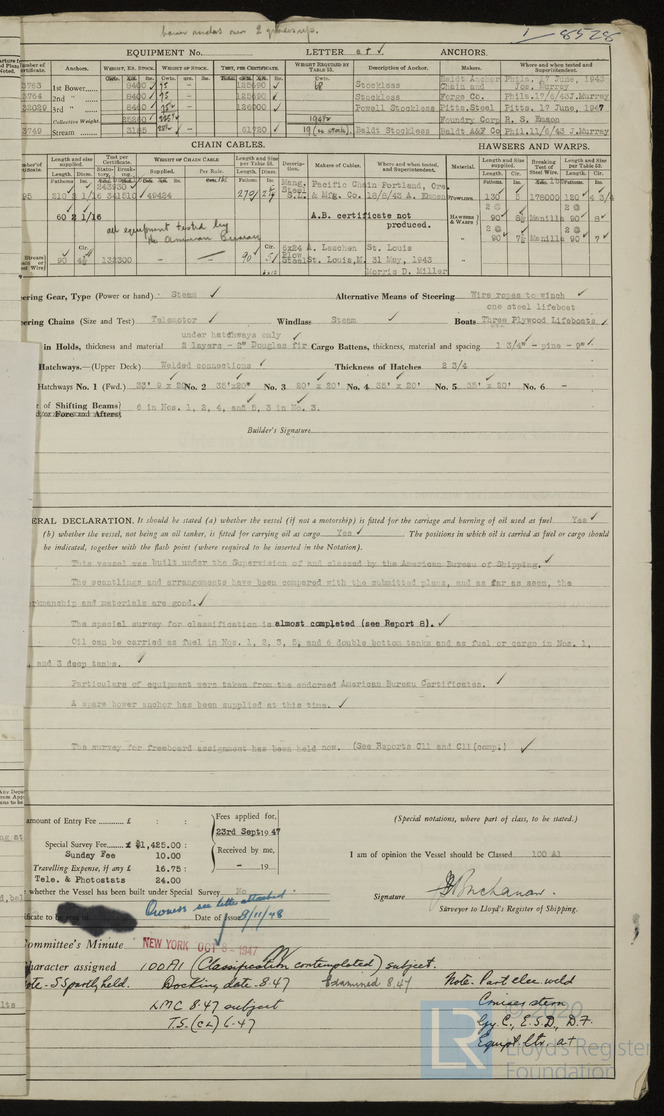 1/8528
EQUIPMENT No.
LETTER a †
ANCHORS.
Anchors.
Weight, Ex. Stock.
Weight of Stock.
Test, per Certificate.
Weight Required by Table 53.
Description of Anchor.
Makers.
Where and when tested and Superintendent.
3763 1st Bower 8400 125690 Stockless Baldt Anchor Phila. 17 June, 1943
Chain and Jos. Murray
3764 2nd " 8400 125690 Stockless Forge Co. Phila. 17/6/43 J.Murray
22029 3rd " 8460 126000 Powell Stockless Pitts.Steel Pitts. 17 June, 1947
Collective Weight 25260 Foundry Corp R. S. Emson
3749 Stream 3185 61720 19 (ex stock) Baldt Stockless Baldt A&F Co Phil.11/6/43 J.Murray
CHAIN CABLES.
HAWSERS AND WARPS.
Length and size supplied.
Test per Certificate
Weight of Chain Cable
Length and Size per Table 53.
Makers of Cables.
Where and when tested, and Superintendent.
Material.
Length and Size supplied.
Breaking Test of Steel Wire.
Length and Size per Table 53.
Supplied.
Per Rule.
243930
210 2 1/16 341510 49424 270
Pacific Chain Portland, Ore.
& Mfg. Co. 18/8/43 A. Emson
Towlines 130 5 178000 120 4 3/4
60 2 1/16
A.B. certificate not
produced.
all equipment tested by
the American Bureau
Hawsers & Warps 90 8½ Manilla 90 8
90 7½ Manilla 90 7
90 4½ 132300 — — 90 5
6x24 A. Leschen St. Louis
Steel St. Louis,M. 31 May, 1943
Morris D. Miller
ering Gear, Type (Power or hand) Steam
Alternative Means of Steering Wire ropes to winch
one steel lifeboat
ering Chains (Size and Test) Telemotor
Windlass Steam
Boats Three Plywood Lifeboats
under hatchways only
in Holds, thickness and material 2 layers - 2" Douglas fir
Cargo Battens, thickness, material and spacing 1 3/4" - pine - 9"
Hatchways.—(Upper Deck) Welded connections
Thickness of Hatches 2 3/4
Hatchways No. 1 (Fwd.) 33' 9 x 20 No. 2 35'x20' No. 3 20' x 20' No. 4 35' x 20' No. 5 35'x 20' No. 6 -
of Shifting Beams 6 in Nos. 1, 2, 4, and 5, 3 in No. 3.
Builder's Signature
ERAL DECLARATION. It should be stated (a) whether the vessel (if not a motorship) is fitted for the carriage and burning of oil used as fuel Yes
(b) whether the vessel, not being an oil tanker, is fitted for carrying oil as cargo Yes The positions in which oil is carried as fuel or cargo should
be indicated, together with the flash point (where required to be inserted in the Notation).
This vessel was built under the Supervision of and classed by the American Bureau of Shipping.
The scantlings and arrangements have been compared with the submitted plans, and as far as seen, the
rkmanship and materials are good.
The special survey for classification is almost completed (see Report 8).
Oil can be carried as fuel in Nos. 1, 2, 3, 5, and 6 double bottom tanks and as fuel or cargo in Nos. 1,
, and 3 deep tanks.
Particulars of equipment were taken from the endorsed American Bureau Certificates.
A spare bower anchor has been supplied at this time.
The survey for freeboard assignment has been held now. (See Reports C11 and C11(comp.)
amount of Entry Fee £ :
Fees applied for,
23rd Sept. 1947
(Special notations, where part of class, to be stated.)
Special Survey Fee £ $1,425.00 :
Received by me,
Sunday Fee 10.00
Travelling Expense, if any £ 16.75 :
- 19
I am of opinion the Vessel should be Classed 100 A1
Tele. & Photostats 24.00
whether the Vessel has been built under Special Survey No
Owners see letter attached
Signature J. Buchanan.
Surveyor to Lloyd's Register of Shipping.
Date of issue 8/11/48
ommittee's Minute NEW YORK OCT 8 - 1947
haracter assigned 100A1 (Classification contemplated) subject.
ote - SS partly held. Docking date 8.47 Examined 8.47
Note. Part elec. weld
LMC 8.47 subject
Cruiser stern
T.S.(CL) 6.47
Gy C., E.S.D., D.F.
Equipt. ltr. a †
LR
© 2020
Lloyd's Register
Foundation